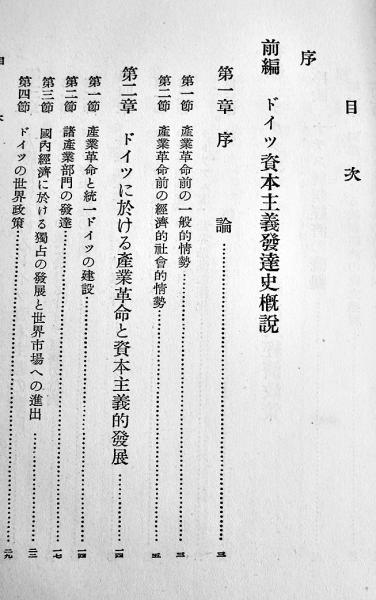 目次
序
前編 ドイツ資本主義發達史槪說
第一章 序論……三
第一節 產業革命前の一般的情勢……三
第二節 產業革命前の經濟的社會的情勢……五
第二章 ドイツに於ける產業革命と資本主義的發展……一四
第一節 產業革命と統一ドイツの建設……一四
第二節 諸產業部門の發達……一七
第三節 國內經濟に於ける獨占の發展と世界市場への進出……二二
第四節 ドイツの世界政策……二九
目次